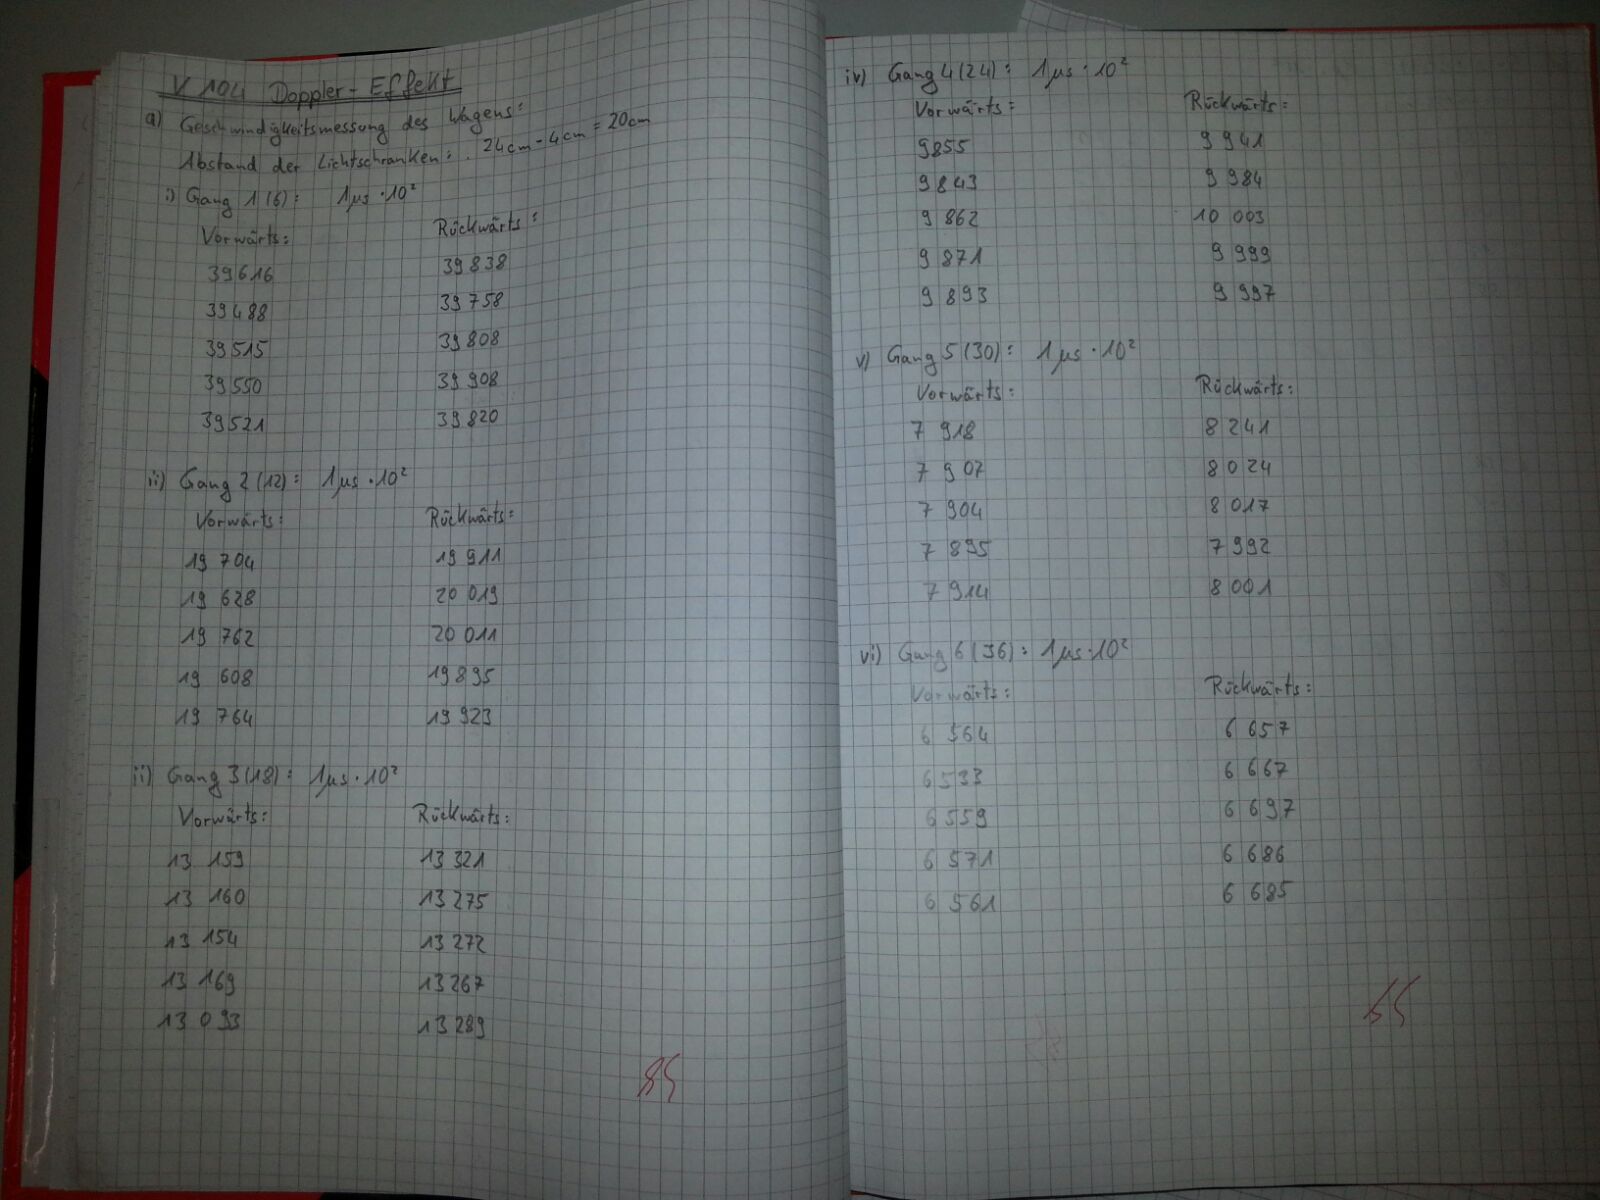 V 104 Doppler-Effekt
a) Geschwindigkeitsmessung des Wagens:
Abstand der Lichtschranken: 24cm - 4cm = 20cm
i) Gang 1(6): 1µs·10²
Vorwärts: Rückwärts:
39616 39838
39488 39758
39515 39808
39550 39908
39521 39820
ii) Gang 2(12): 1µs·10²
Vorwärts: Rückwärts:
19 704 19 911
19 628 20 019
19 762 20 011
19 608 19 895
19 764 19 923
ii) Gang 3(18): 1µs·10²
Vorwärts: Rückwärts:
13 159 13 321
13 160 13 275
13 154 13 272
13 169 13 267
13 093 13 289
iv) Gang 4(24): 1µs·10²
Vorwärts: Rückwärts:
9855 9 941
9 843 9 984
9 862 10 003
9 871 9 999
9 893 9 997
v) Gang 5(30): 1µs·10²
Vorwärts: Rückwärts:
7 918 8 241
7 907 8 024
7 904 8 017
7 895 7 992
7 914 8 001
vi) Gang 6(36): 1µs·10²
Vorwärts: Rückwärts:
6 564 6 657
6 533 6 667
6 559 6 697
6 571 6 686
6 561 6 685